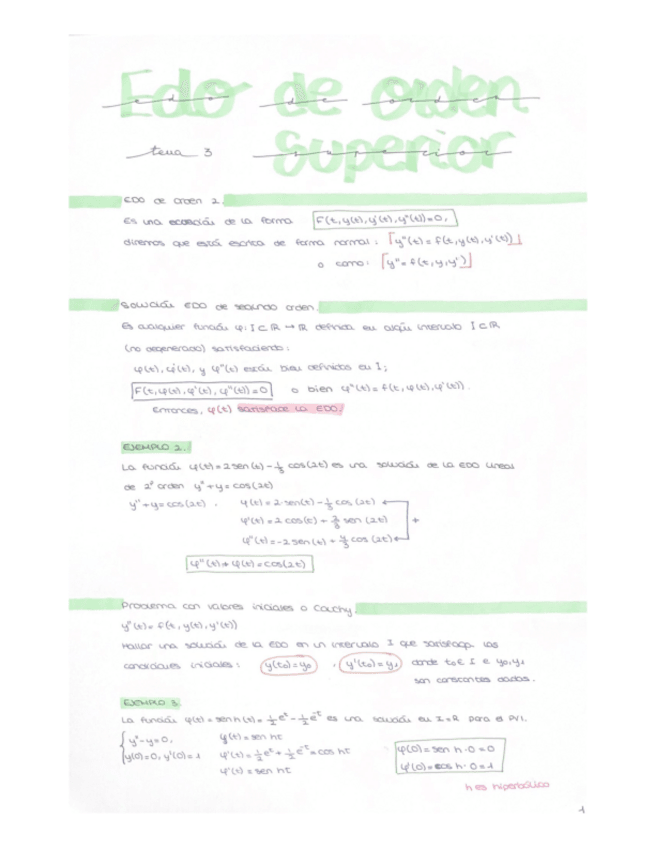 Edo de orden
edo de orden
Superior
tema 3 superior
EDO de orden 2.
Es una ecuación de la forma F(t, y(t), y'(t), y''(t))=0,
diremos que está escrita de forma normal: y''(t) = f(t, y(t), y'(t))
o como: y'' = f(t, y, y')
Solución EDO de segundo orden.
Es cualquier función φ: I ⊂ ℝ → ℝ definida en algún intervalo I ⊂ ℝ
(no degenerado) satisfaciendo:
φ(t), φ'(t), y φ''(t) están bien definidos en I;
F(t, φ(t), φ'(t), φ''(t)) = 0 o bien φ''(t) = f(t, φ(t), φ'(t)).
Entonces, φ(t) satisface la EDO.
EJEMPLO 2.
La función φ(t) = 2 sen(t) - 1/3 cos(2t) es una solución de la EDO lineal
de 2º orden y'' + y = cos(2t)
y'' + y = cos(2t). φ(t) = 2 sen(t) - 1/3 cos(2t)
φ'(t) = 2 cos(t) + 2/3 sen(2t) +
φ''(t) = -2 sen(t) + 4/3 cos(2t)
φ''(t) + φ(t) = cos(2t)
Problema con valores iniciales o Cauchy.
y''(t) = f(t, y(t), y'(t))
Hallar una solución de la EDO en un intervalo I que satisfaga las
condiciones iniciales: y(t₀) = y₀, y'(t₀) = y₁ donde t₀ ∈ I e y₀, y₁
son constantes dadas.
EJEMPLO 3.
La función φ(t) = sen h(t) = 1/2 e^t - 1/2 e^-t es una solución en I = ℝ para el PVI.
y'' - y = 0, φ(t) = sen ht
y(0) = 0, y'(0) = 1 φ'(t) = 1/2 e^t + 1/2 e^-t = cos ht φ(0) = sen h·0 = 0
φ'(t) = sen ht φ'(0) = cos h·0 = 1
h es hiperbólico
1